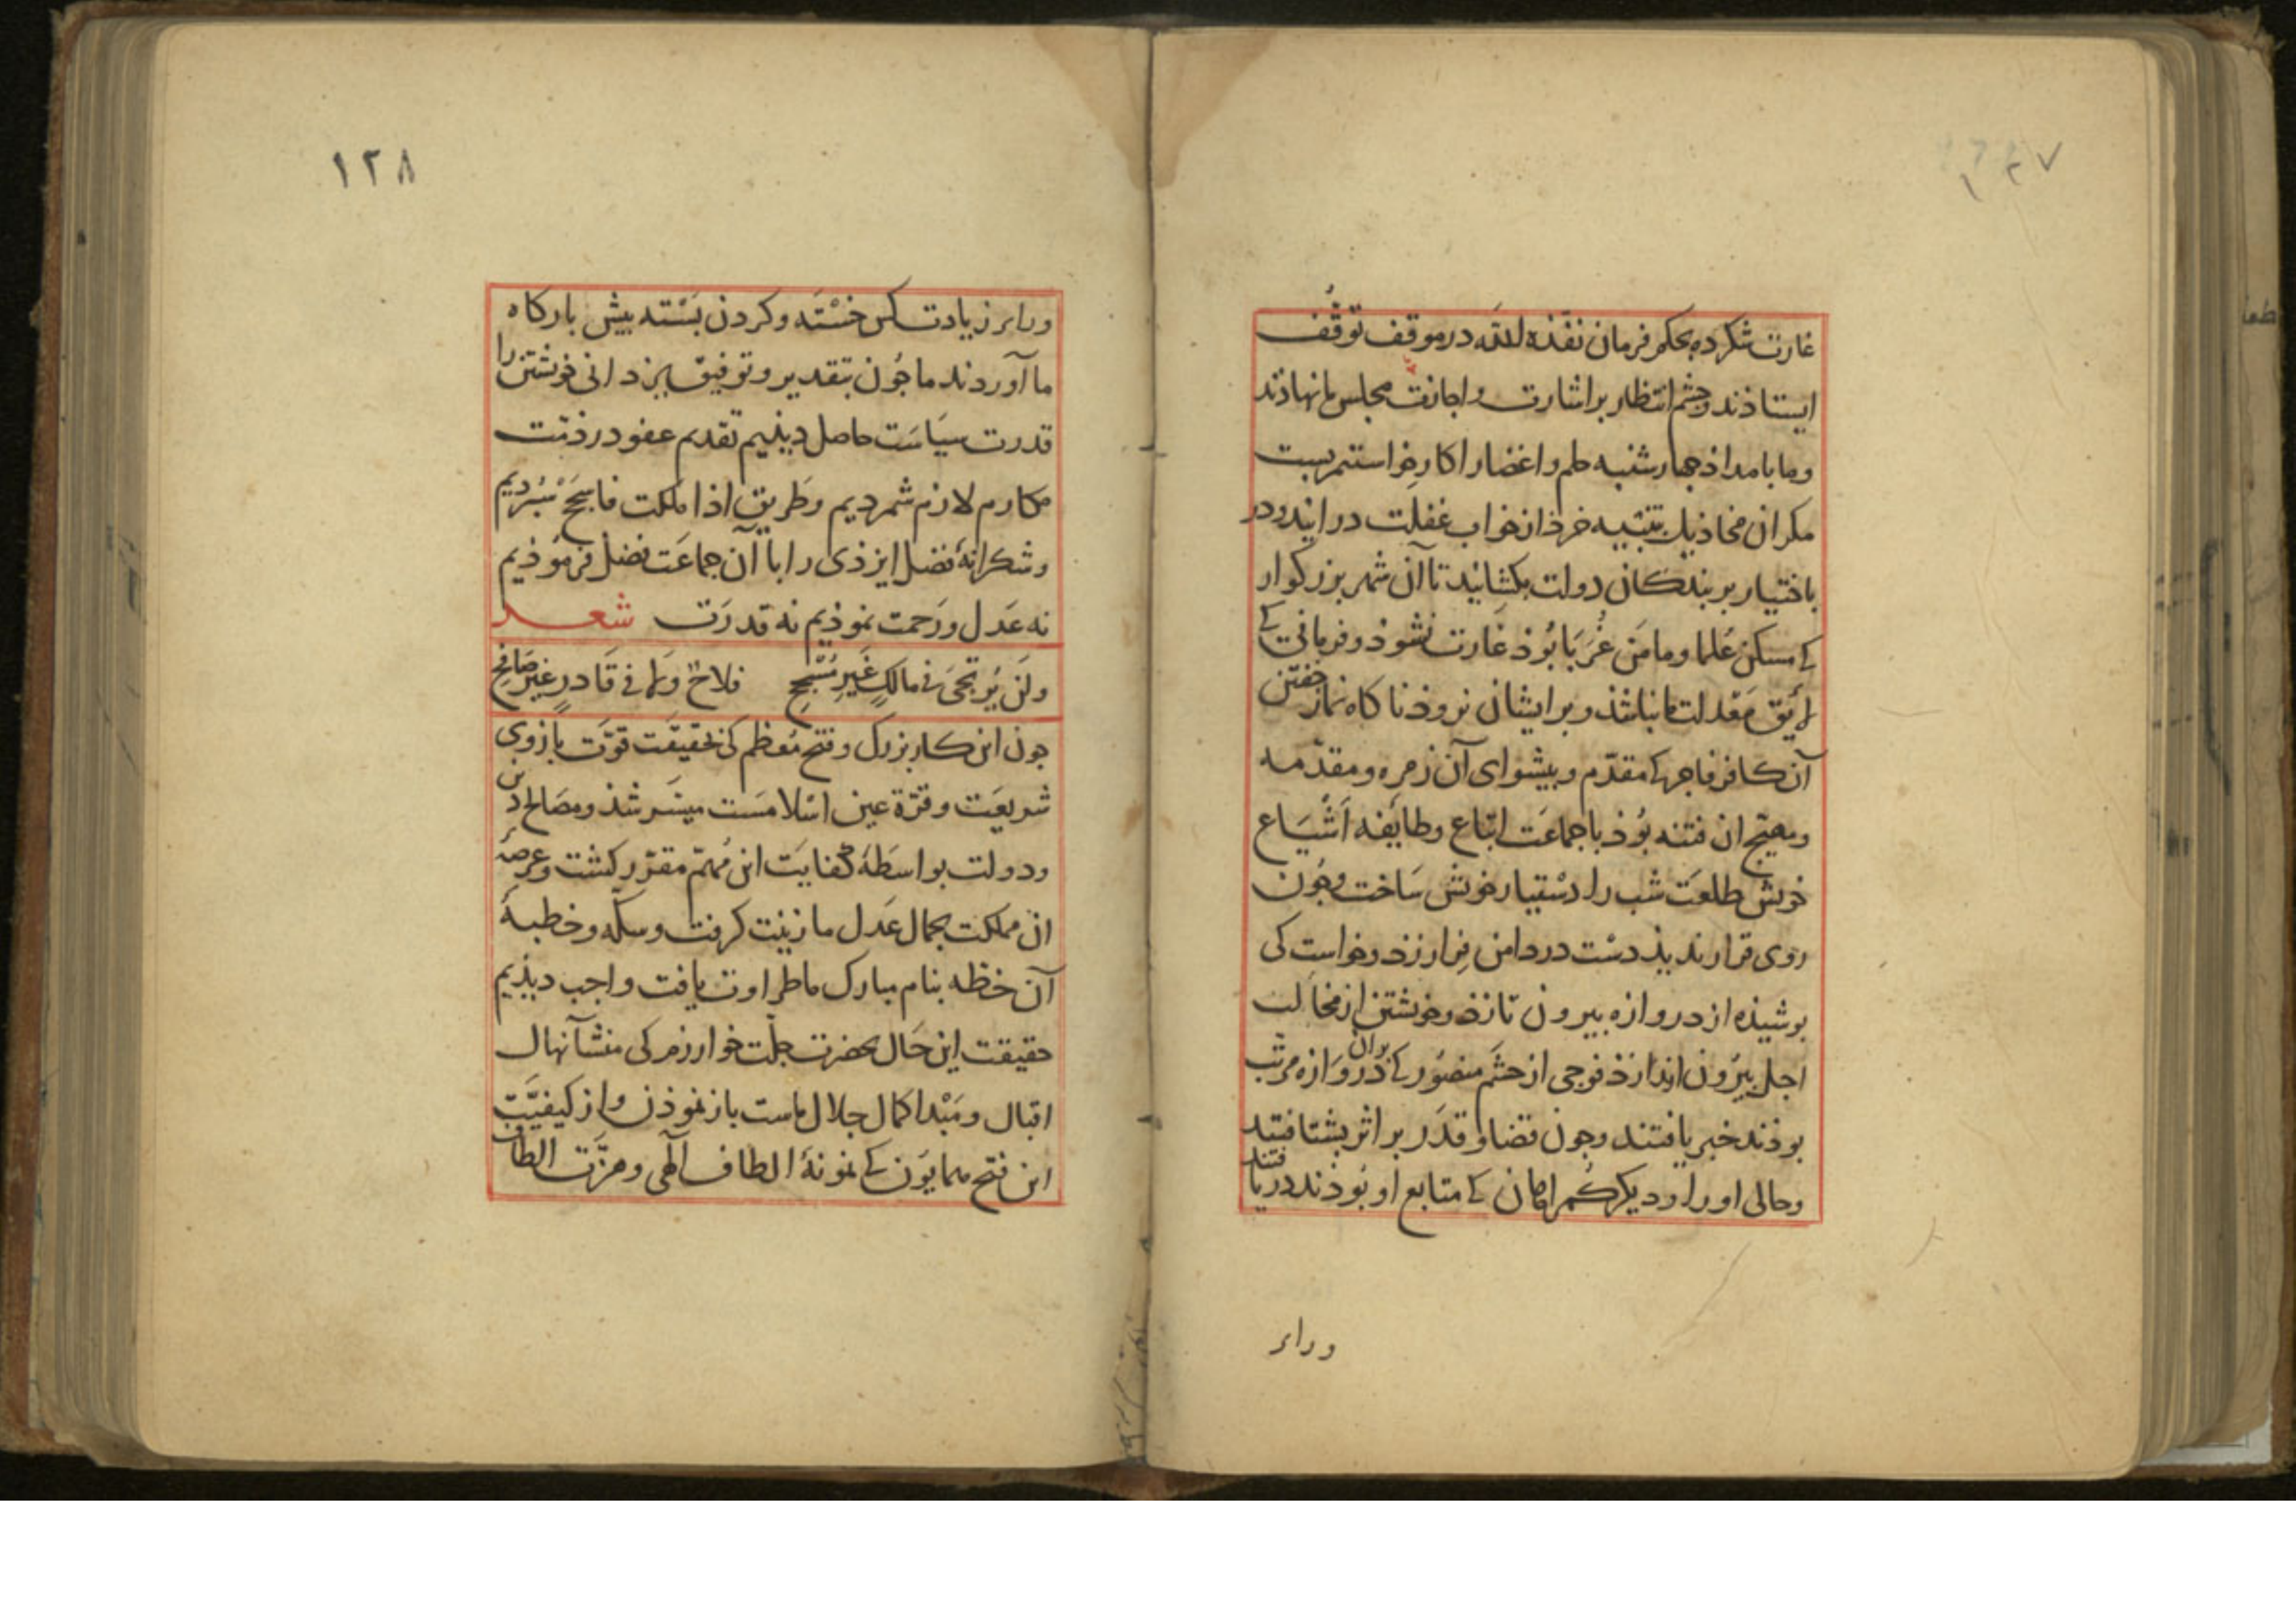 ١٢٧
غارت شکرده بحکم فرمان نفّذه الله در موقف توقّف
ایستاذند و چشم انتظار بر اشارت و اجازت مجلس ما نهاذند
وما بامداذ جهارشنبه حلم و اغضا را کار خواستیم بست
مکر ان مخاذیل بتنبیه خرذ از خواب غفلت در ایند و در
باختیار بر بندکان دولت بکشانید تا آن شهر بزرکوار
کی مسکن عُلما و مامَن غُرَبا بُوذ غارت نشوذ و فرمانی کی
لایق مَعْدلت ما نباشذ و بر ایشان نروذ ناکاه نماز خفتن
آن کافر فاجر کی مقدّم و بیشوای آن زمره و مقدّمه
و مهیّج ان فتنه بُوذ با جماعَت اتباع و طایفه اَشیَاع
خویش طلعَت شب را دسْتیار خویش سَاخت وجون
روی قرار ندیذ دسْت در دامن فِرار زذ و خواست کی
بوشیذه از دروازه بیرون تازذ و خویشتن از مخالب
اجل بیرُون اندازذ فوجی از حشَم منصُور کی بران دَروَازه مرتّب
بوذند خبر یافتند وجون قضا و قدَر بر اثر بشتافتند
وحالی او را و دیکر کُمراهان کی متابع او بُوذند دریافتند
ورای
١٢٨
ورای زیادت کس خسْتَه و کردن بَسْته بیش بارکاه
ما آوردند ما جُون بتقدیر و توفیق یزدانی خویشتن را
قدرت سیَاسَت حاصل دیذیم تقدیم عفو در ذمّت
مکارم لازم شمردیم و طَریق اذا ملکت فاسْجَحْ سْبُردیم
و شکرانهٔ فضل ایزذی را با آن جماعَت فضل فرمُوذیم
نه عَدل و رَحمت نموذیم نه قدرَت شعـــر
ولَن یُرتَجَی فی مالکٍ غَیرِ مُسْجِحٍ فلاحٌ ولا فی قَادرٍ غیرِ صَافحِ
جون این کار بزرک و فتح مُعظم کی بحقیقَت قوّت بازوی
شریعَت و قرّة عین اسْلامسَت میسّر شذ و مصَالح دین
و دولت بواسَطهٔ کفایَت این مُهمّ مقرّر کشت و عرصهٔ
ان مملکت بجمال عَدل ما زینت کرفت و سکّه و خطبهٔ
آن خطّه بنام مبارک ما طراوت یافت واجب دیذیم
حقیقت این حَال بحضرت جلّت خوارزم کی منشآ نهال
اقبال و مَبْدا کمال جلال ماست باز نموذن و از کیفیّت
این فتح همایُون کی نمونهٔ الطاف الٓهی و هزّت الطاف